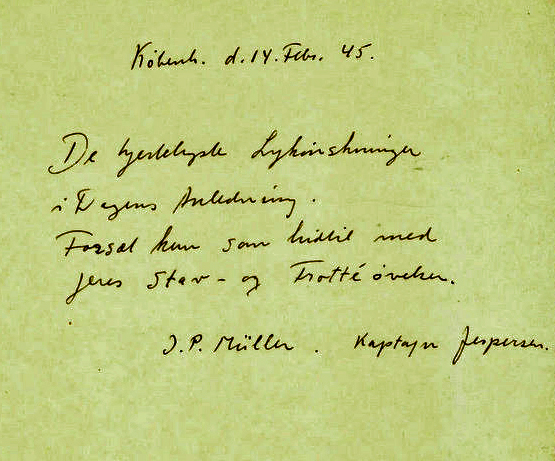 Københ. d. 14. Febr. 45.
De hjerteligste Lykønskninger
i Dagens Anledning.
Forsæt kun som hidtil med
Jeres Stav- og Frotté øvelser.
J.P. Müller. Kaptajn Jespersen.